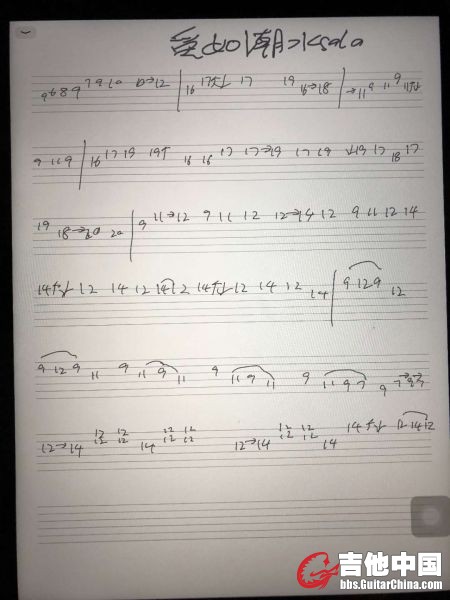 爱如潮水solo
9 6 8 9 7 9 10 10→12 | 16 17 17 19 16→18 | →11 9 11 9 11
9 11 9 | 16 17 19 19↑ 16 16 17 17→19 17 19 19 17 18 17
19 18→20 20 | 9 11→12 9 11 12 12→14 12 9 11 12 14
14 12 14 12 14 12 14 12 14 12 14 | 9 12 9 12
9 12 9 11 9 11 9 11 9 11 9 11 9 11 9 7 9 7
12→14 12 12 12 12 14 12 12 12 12 12→14 12 12 12 12 14 14 12 14 12
吉他中国
bbs.GuitarChina.com